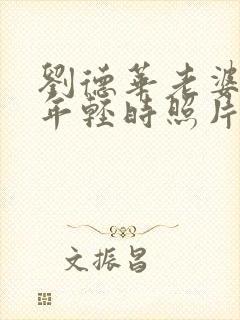 劉德華老婆
年輕時照片
文振昌